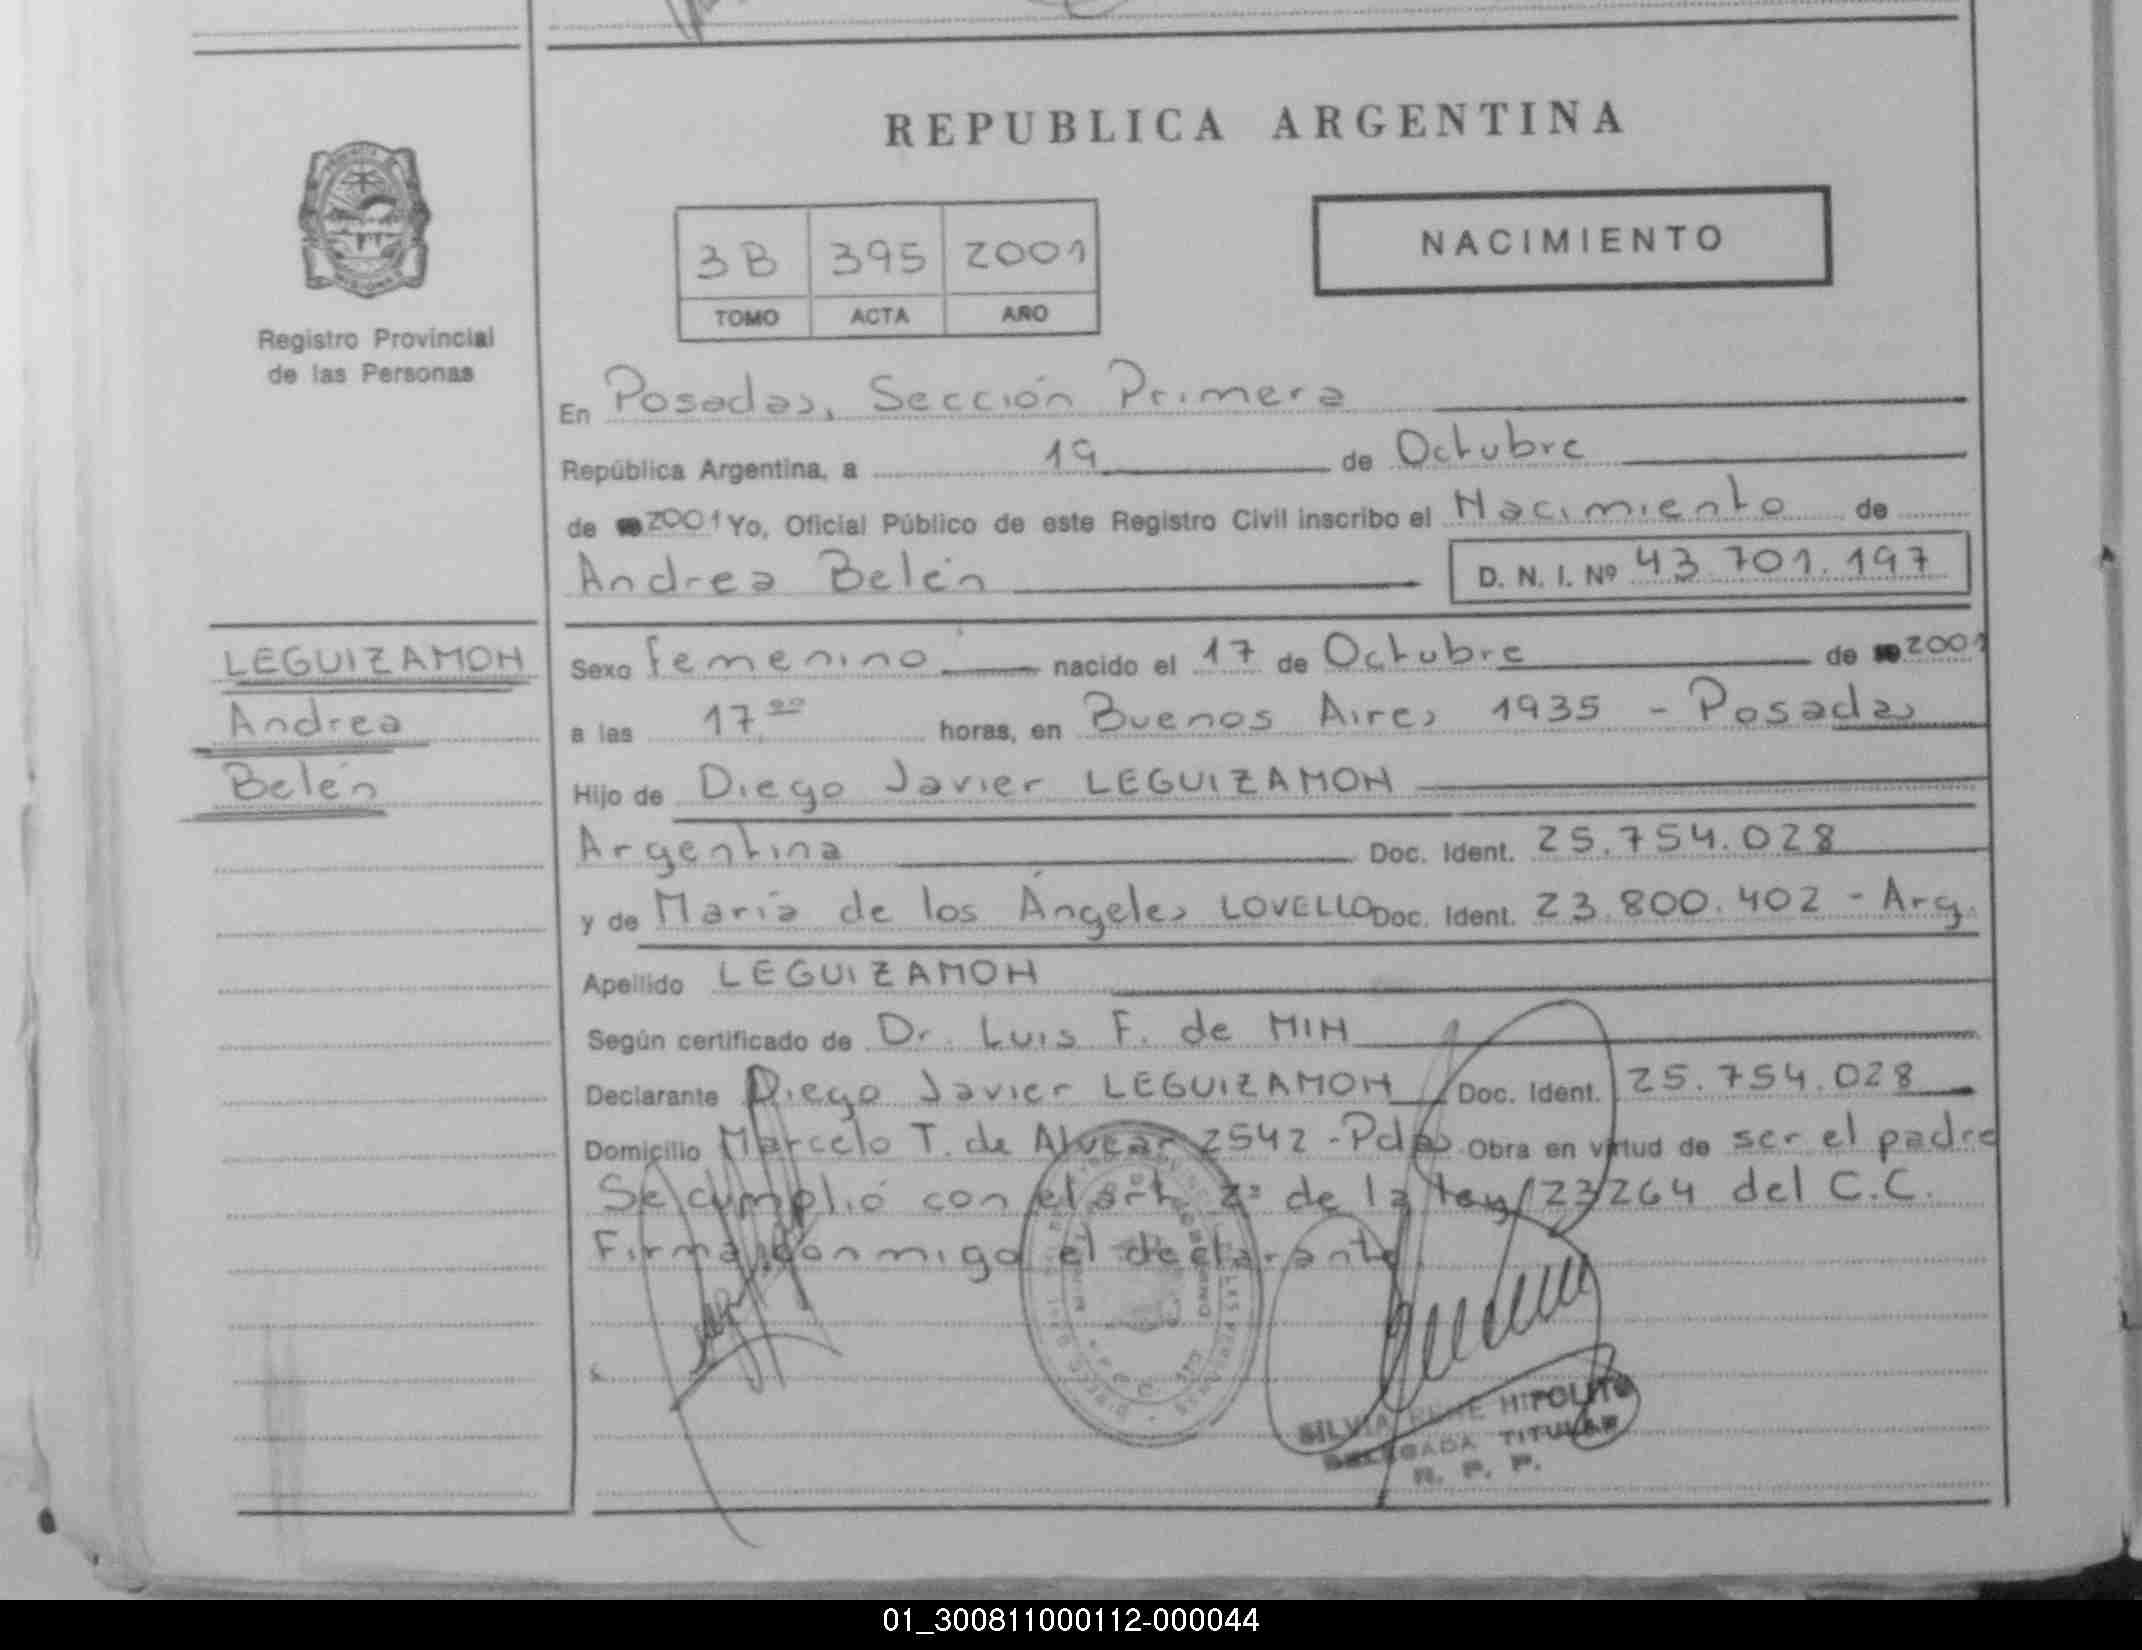 REPUBLICA ARGENTINA
3B 395 2001
TOMO ACTA AÑO
NACIMIENTO
Registro Provincial
de las Personas
En Posadas, Sección Primera
República Argentina, a 19 de Octubre
de 2001 Yo, Oficial Público de este Registro Civil inscribo el Nacimiento de
Andrea Belén D. N. I. Nº 43.701.197
LEGUIZAMON
Andrea
Belén
Sexo femenino nacido el 17 de Octubre de 2001
a las 17 00 horas, en Buenos Aires 1935 - Posadas
Hijo de Diego Javier LEGUIZAMON
Argentina Doc. Ident. 25.754.028
y de María de los Ángeles LOVELLO Doc. Ident. 23.800.402 - Arg.
Apellido LEGUIZAMON
Según certificado de Dr. Luis F. de MIN
Declarante Diego Javier LEGUIZAMON Doc. Ident. 25.754.028
Domicilio Marcelo T. de Alvear 2542 - Pdas Obra en virtud de ser el padre
Se cumplió con el art. 2º de la ley 23264 del C.C.
Firma conmigo el declarante
SILVIA IRENE HIPOLITO
DELEGADA TITULAR
R. P. P.
01_300811000112-000044